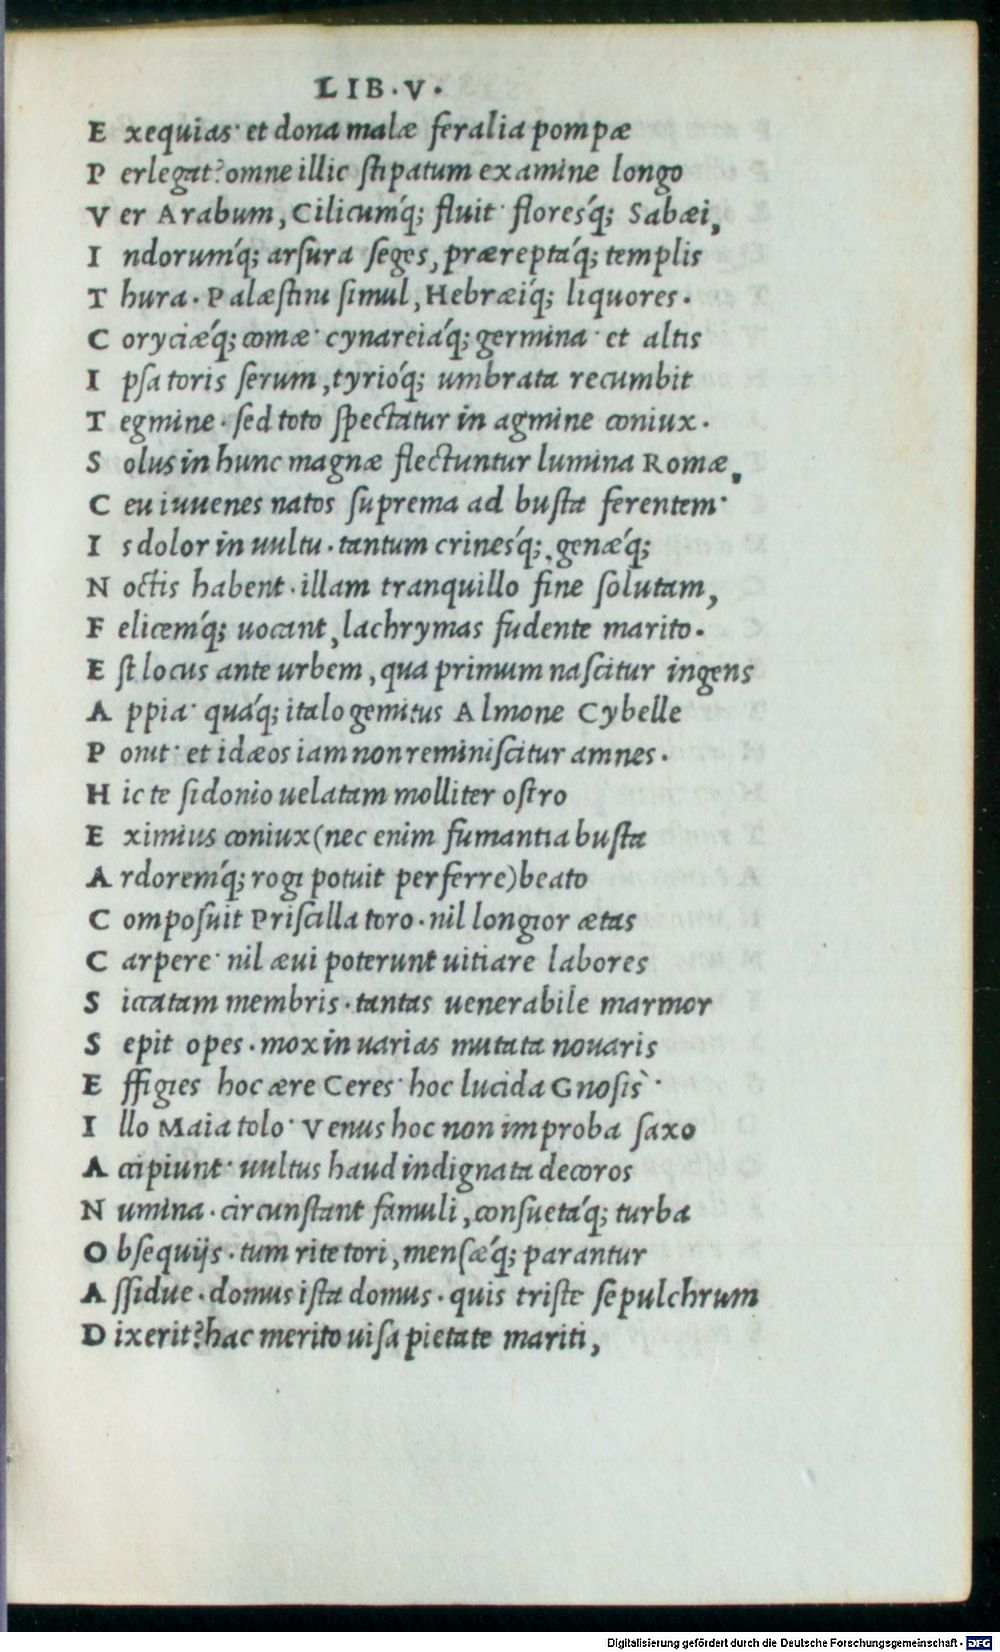 LIB.V.
E xequias· et dona malæ feralia pompæ
P erlegat? omne illic stipatum examine longo
V er Arabum, Cilicumq́; fluit· floresq́; Sabæi,
I ndorumq́; arsura seges, præreptaq́; templis
T hura. Palæstini simul, Hebræiq́; liquores.
C oryciæq́; comæ· cynareiaq́; germina· et altis
I psa toris serum, tyrioq́; umbrata recumbit
T egmine. sed toto spectatur in agmine coniux.
S olus in hunc magnæ flectuntur lumina Romæ,
C eu iuuenes natos suprema ad busta ferentem·
I s dolor in uultu. tantum crinesq́;, genæq́;
N octis habent. illam tranquillo fine solutam,
F elicemq́; uocant, lachrymas fudente marito.
E st locus ante urbem, qua primum nascitur ingens
A ppia· quaq́; italo gemitus Almone Cybelle
P onit· et idæos iam non reminiscitur amnes.
H ic te sidonio uelatam molliter ostro
E ximius coniux (nec enim fumantia busta
A rdoremq́; rogi potuit perferre) beato
C omposuit Priscilla toro. nil longior ætas
C arpere· nil æui poterunt uitiare labores
S iccatam membris. tantas uenerabile marmor
S epit opes. mox in uarias mutata nouaris
E ffigies hoc ære Ceres· hoc lucida Gnosis·
I llo Maia tolo· Venus hoc non improba saxo
A ccipiunt· uultus haud indignata decoros
N umina. circunstant famuli, consuetaq́; turba
O bsequijs. tum rite tori, mensæq́; parantur
A ssidue. domus ista domus. quis triste sepulchrum
D ixerit? hac merito uisa pietate mariti,
Digitalisierung gefördert durch die Deutsche Forschungsgemeinschaft - DFG